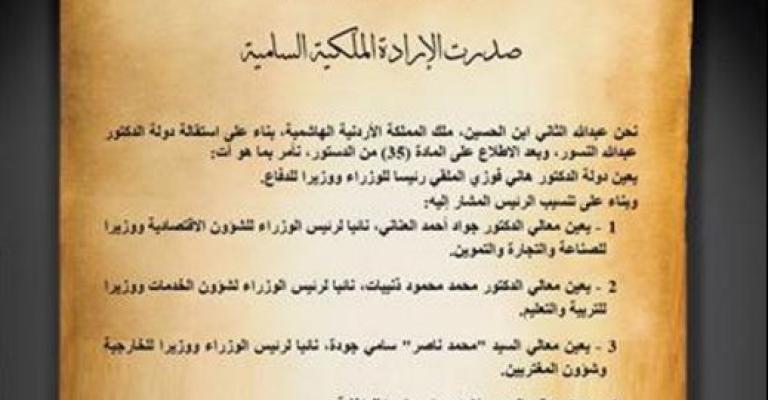 صدرت الإرادة الملكية السامية
نحن عبدالله الثاني ابن الحسين، ملك المملكة الأردنية الهاشمية، بناء على استقالة دولة الدكتور
عبدالله النسور، وبعد الاطلاع على المادة (35) من الدستور، نأمر بما هو آت:
يعين دولة الدكتور هاني فوزي الملقي رئيسا للوزراء ووزيرا للدفاع.
وبناء على تنسيب الرئيس المشار إليه:
1 - يعين معالي الدكتور جواد أحمد العناني، نائبا لرئيس الوزراء للشؤون الاقتصادية ووزيرا
للصناعة والتجارة والتموين.
2 - يعين معالي الدكتور محمد محمود ذنيبات، نائبا لرئيس الوزراء لشؤون الخدمات ووزيرا
للتربية والتعليم.
3 - يعين معالي السيد "محمد ناصر" سامي جودة، نائبا لرئيس الوزراء ووزيرا للخارجية
وشؤون المغتربين.